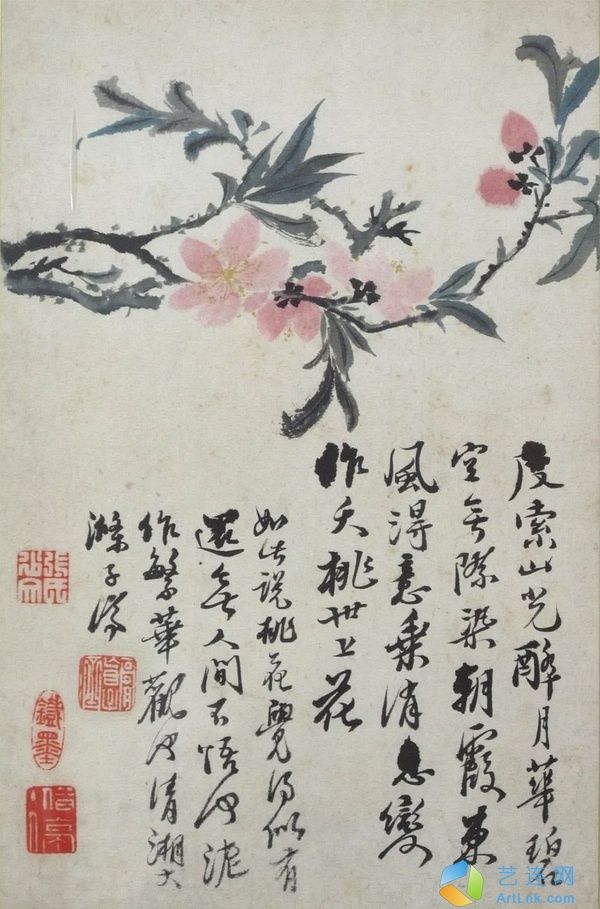 度索山光醉月華碧
空無際染朝霞東
風得意乘消息變
作夭桃世上花
如此說桃花覺得似有
還無人間不悟何泥
作繁華觀也清湘大
滌子濟
艺连网
ArtLnk.com